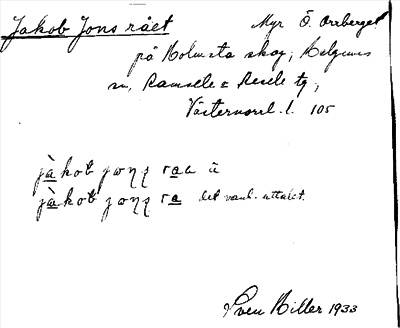 Jakob Jons rået Myr Ö. Orrberget
på Holmsta skog, Helgums
sn, Ramsele o Resele tg,
Västernorrl. l. 105
jàkob jɷnʂ raa ä
jàkob jɷnʂ ra det vanl. uttalet.
Sven Hiller 1933